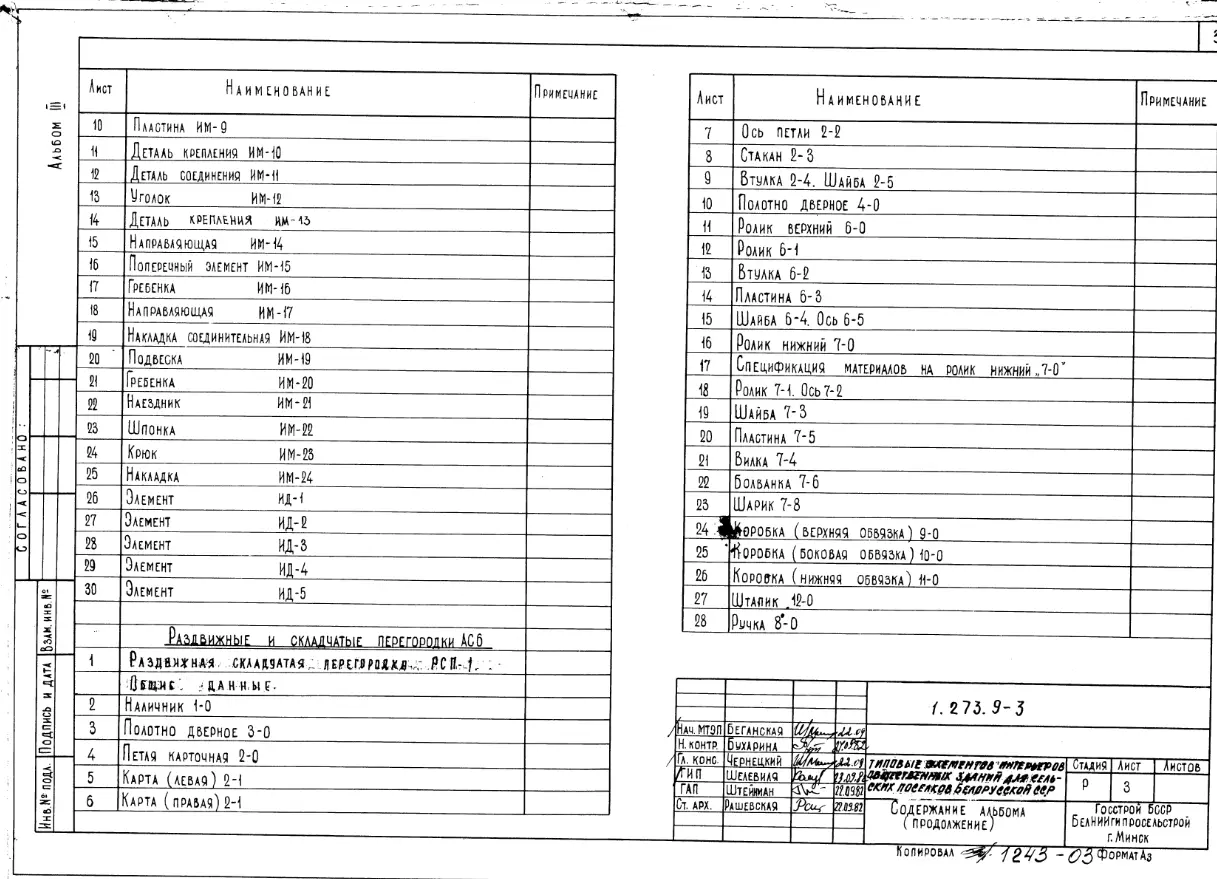 3
Альбом III
Лист Наименование Примечание
10 Пластина ИМ-9
11 Деталь крепления ИМ-10
12 Деталь соединения ИМ-11
13 Уголок ИМ-12
14 Деталь крепления ИМ-13
15 Направляющая ИМ-14
16 Поперечный элемент ИМ-15
17 Гребенка ИМ-16
18 Направляющая ИМ-17
19 Накладка соединительная ИМ-18
20 Подвеска ИМ-19
21 Гребенка ИМ-20
22 Наездник ИМ-21
23 Шпонка ИМ-22
24 Крюк ИМ-23
25 Накладка ИМ-24
26 Элемент ИД-1
27 Элемент ИД-2
28 Элемент ИД-3
29 Элемент ИД-4
30 Элемент ИД-5
Раздвижные и складчатые перегородки АС6
1 Раздвижная складчатая перегородка РСП-1.
Общие данные.
2 Наличник 1-0
3 Полотно дверное 3-0
4 Петля карточная 2-0
5 Карта (левая) 2-1
6 Карта (правая) 2-1
Лист Наименование Примечание
7 Ось петли 2-2
8 Стакан 2-3
9 Втулка 2-4. Шайба 2-5
10 Полотно дверное 4-0
11 Ролик верхний 6-0
12 Ролик 6-1
13 Втулка 6-2
14 Пластина 6-3
15 Шайба 6-4. Ось 6-5
16 Ролик нижний 7-0
17 Спецификация материалов на ролик нижний „7-0"
18 Ролик 7-1. Ось 7-2
19 Шайба 7-3
20 Пластина 7-5
21 Вилка 7-4
22 Болванка 7-6
23 Шарик 7-8
24 Коробка (верхняя обвязка) 9-0
25 Коробка (боковая обвязка) 10-0
26 Коробка (нижняя обвязка) 11-0
27 Штапик 12-0
28 Ручка 8-0
Согласовано:
Взам. инв. №
Подпись и дата
Инв. № подл.
1.273.9-3
Нач. МТЭП Беганская
Н. контр. Бухарина
Гл. конс. Чернецкий
ГИП Шелевиля
ГАП Штейнман 22.09.82
Ст. арх. Рашевская 22.09.82
Типовые элементов интерьеров
общественных зданий для сель-
ских поселков Белорусской ССР
Стадия Лист Листов
Р 3
Содержание альбома
(продолжение)
Госстрой БССР
БелНИИгипросельстрой
г. Минск
Копировал 1243-03 Формат А3